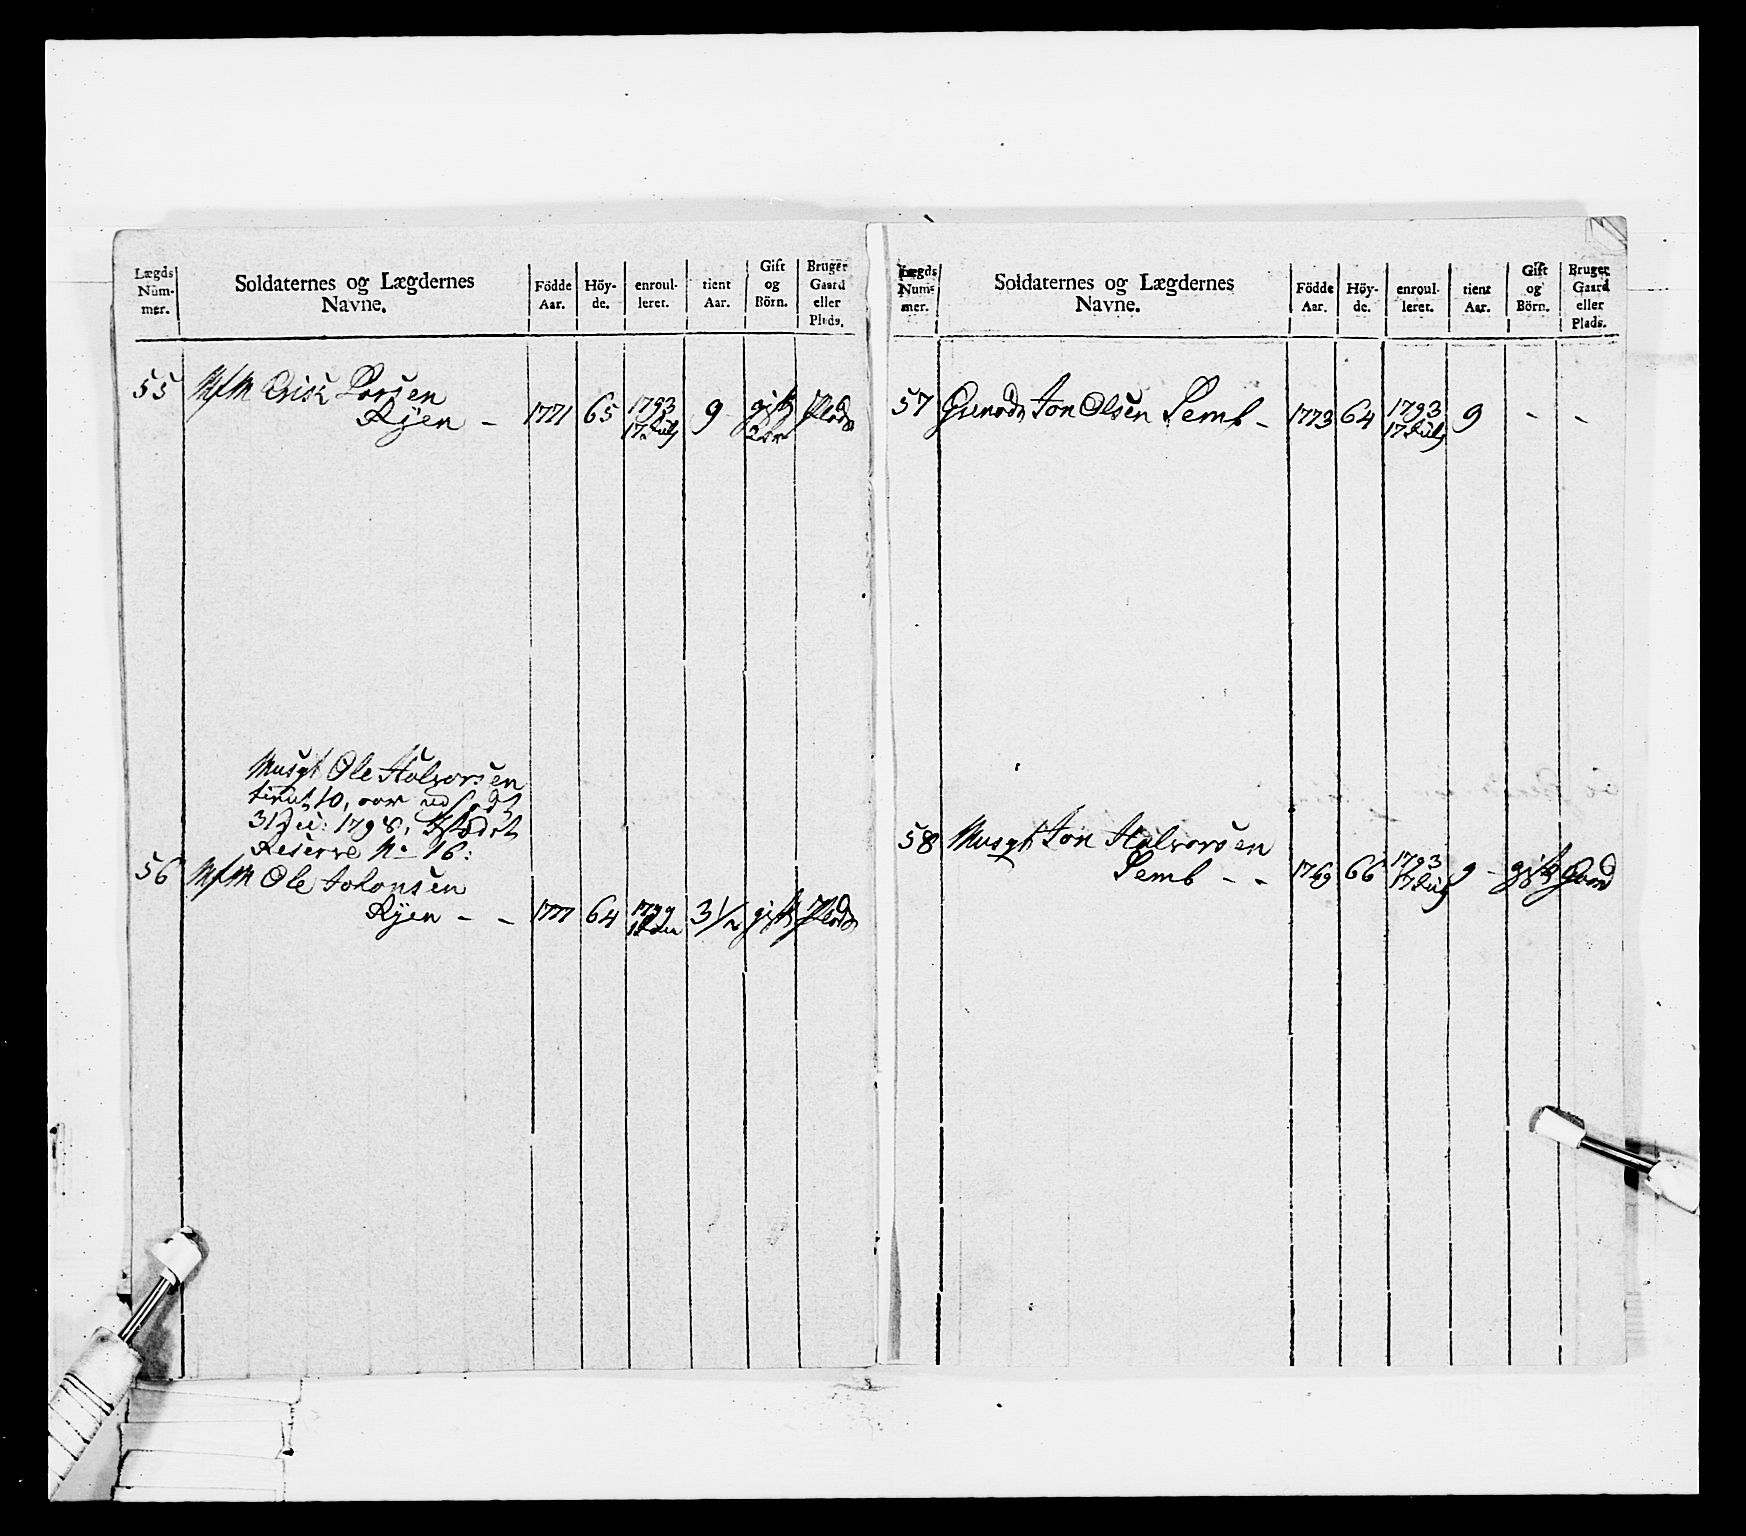 Lægds Num- mer.
Soldaternes og Lægdernes Navne.
Födde Aar.
Höy- de.
enroul- leret.
tient Aar.
Gift og Börn.
Bruger Gaard eller Plads.
55 Erich Larsen
Ryen - 1771 65 1793 17 July 9 gift Plads
Musqt Ole Halvorsen
tient 10, aar
31 Dec: 1798,
Reserve No 16:
56 Ole Johansen
Ryen - - 1777 64 1799 3 1/2 gift Plads
Lægds Num- mer.
Soldaternes og Lægdernes Navne.
Födde Aar.
Höy- de.
enroul- leret.
tient Aar.
Gift og Börn.
Bruger Gaard eller Plads.
57 Grenadr Jon Olsen Semb - 1773 64 1793 17 July 9 - -
58 Musqt Jon Halvorsen
Semb - - 1769 66 1793 17 July 9 - gift Gaard